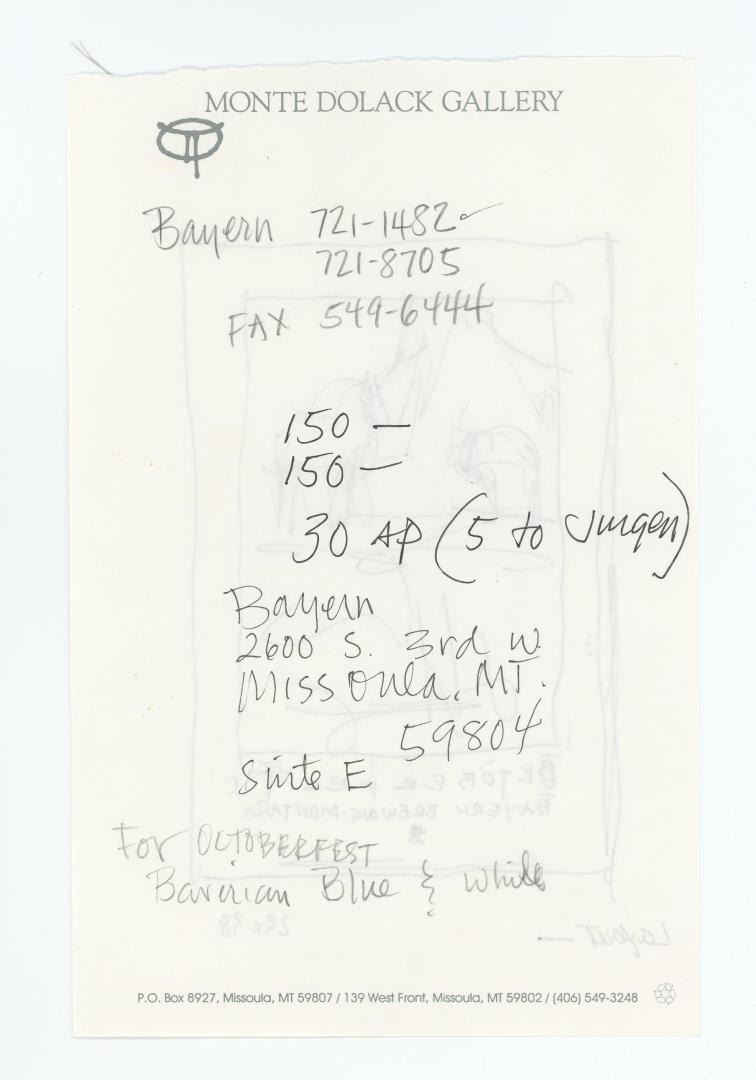 MONTE DOLACK GALLERY
Bayern 721-1482
721-8705
FAX 549-6444
150 —
150 —
30 AP (5 to Jurgen)
Bayern
2600 S. 3rd W
Missoula, MT.
59804
Suite E
For OCTOBERFEST
Bavarian Blue & White
OCTOBER FEST
BAYERN BREWING • MONTANA
Layout — 23x38
P.O. Box 8927, Missoula, MT 59807 / 139 West Front, Missoula, MT 59802 / (406) 549-3248